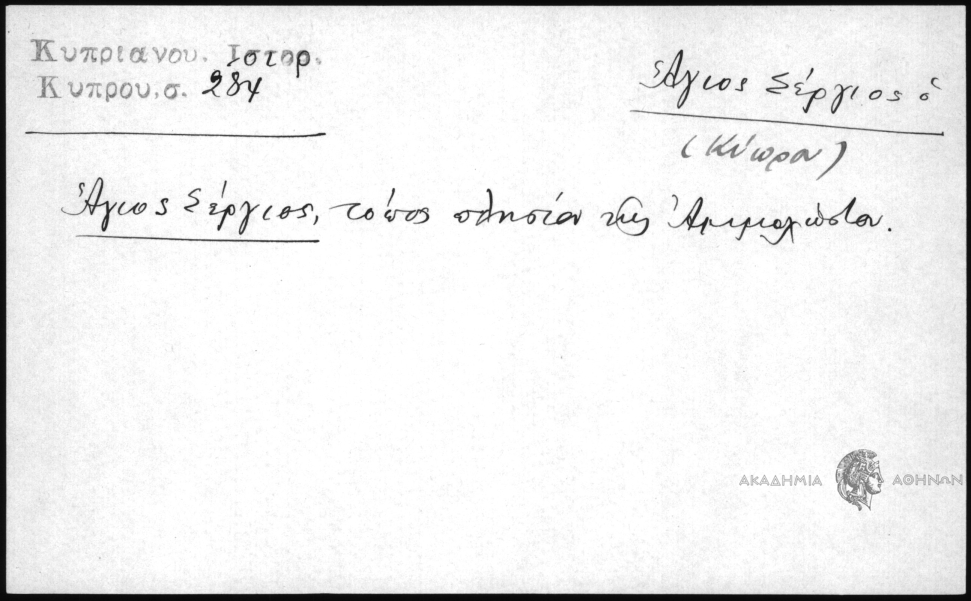 Κυπριανου. Ιστορ.
Κυπρου,σ. 284
Ἅγιος Σέργιος ὁ
(Κύπρου)
Ἅγιος Σέργιος, τόπος πλησίον τῆς Ἀμμοχώστου.
ΑΚΑΔΗΜΙΑ ΑΘΗΝΩΝ